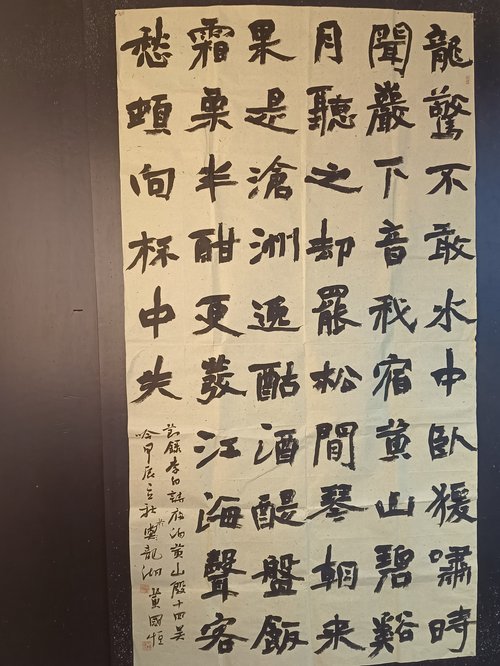 龍驚不敢水中臥猨嘯時
聞嚴下音我宿黄山碧谿
月聽之却罷松間琴朝来
果是滄洲逸酤酒醍盤飯
霜栗半酣更發江海聲客
愁頓向杯中失
節錄李白詩夜泊黄山殷十四吴
吟甲辰立秋於雲龍湖黄國恒